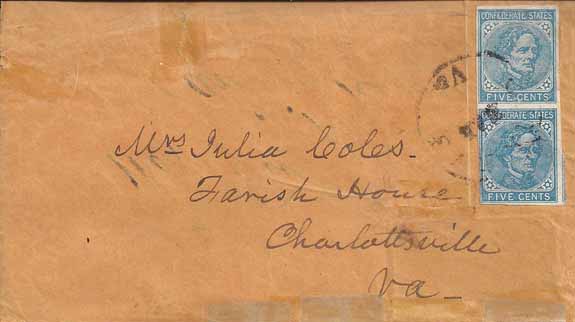 CONFEDERATE STATES
FIVE CENTS
CONFEDERATE STATES
FIVE CENTS
VA
Mrs Julia Coles.
Farish House
Charlottsville
Va_